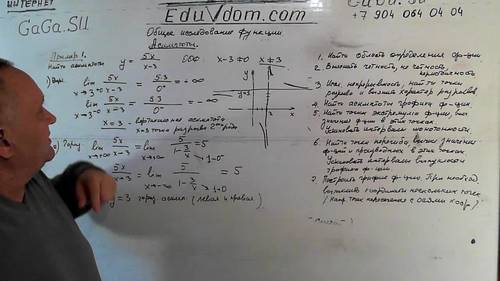 ИНТЕРНЕТ
GaGa.SU
EduVdom.com
+7 904 064 04 04
Общее исследование функции
Асимптоты.
Пример 1.
Найти асимптоты y = 5x/x-3 ООФ: x-3≠0 x≠3
1) Верт. lim x→3+0 5x/x-3 = 5·3/0+ = +∞
lim x→3-0 5x/x-3 = 5·3/0- = -∞
x=3 - вертикальная асимптота
x=3 точка разрыва 2го рода
lim x→+∞ 5x/x-3 = lim x→+∞ 5/1-3/x = 5
1-0
5x/x-3 = lim x→-∞ 5/1-3/x = 5
1+0
y=3 гориз. асимп. (левая и правая)
y
x
y=3
3
1. Найти область определения ф-ции
2. Выяснить чётность, не чётность, периодичность
3. Иссл. непрерывность, найти точки
разрыва и выяснить характер разрывов
4. Найти асимптоты графика ф-ции.
5. Найти точки экстремума ф-ции, выч.
значения ф-ции в этих точках
Установить интервалы монотонности.
6. Найти точки перегиба, вычис. значение
ф-ции и производных в этих точках
Установить интервалы выпуклости
графика ф-ции
7. Построить график ф-ции. При необход.
вычислить координаты нескольких точек
(Напр. точки пересечения с осями коор.)